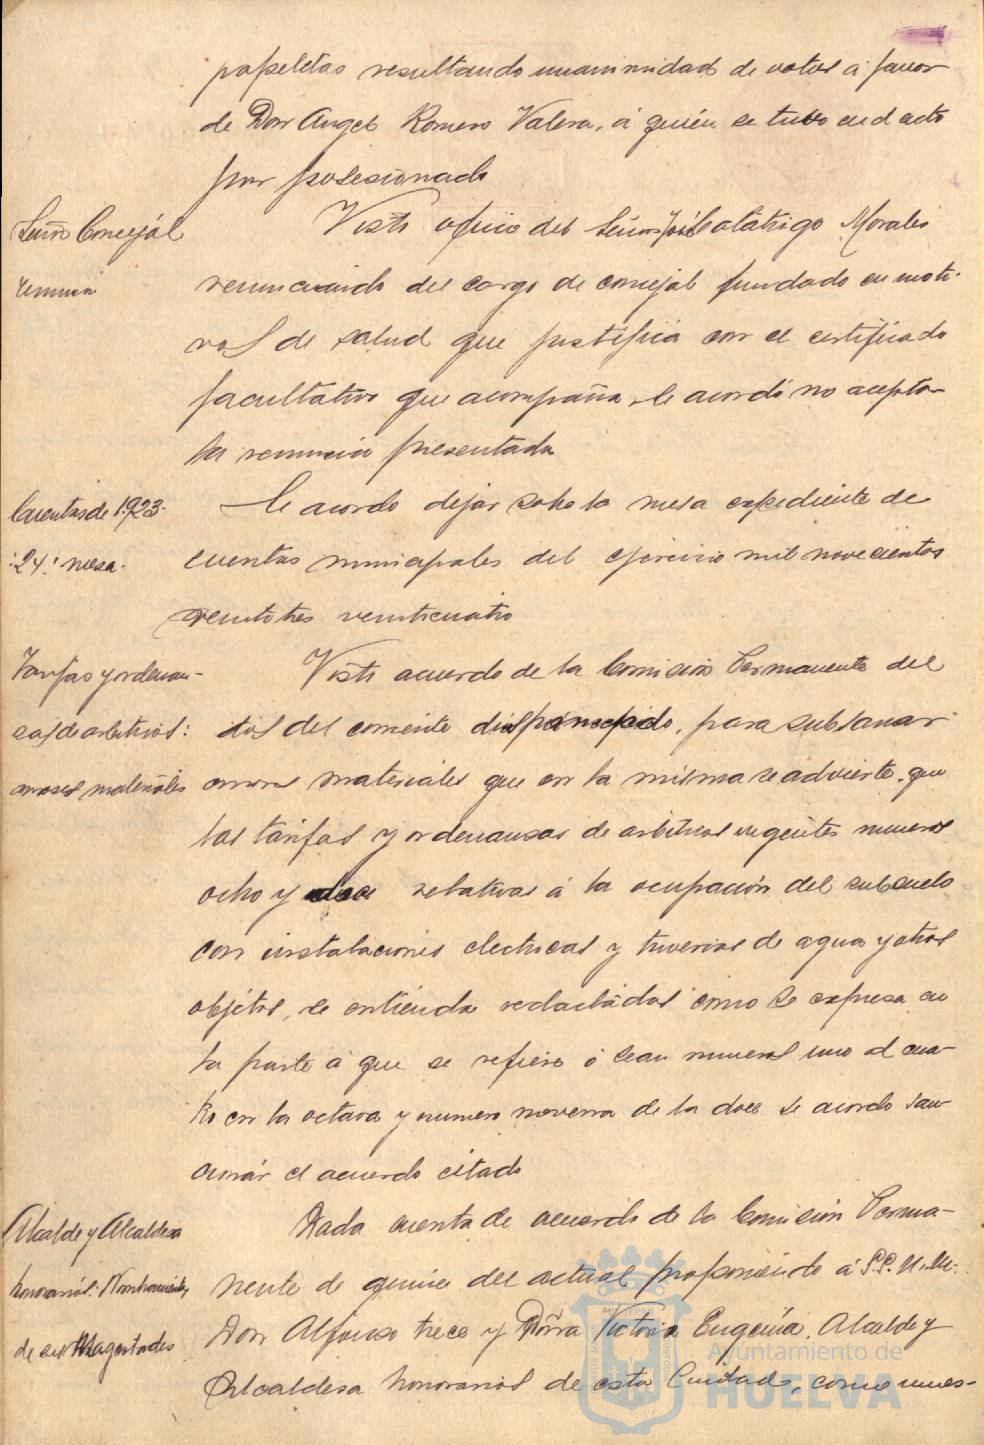 papeletas resultando unanimidad de votos á favor
de Don Angel Romero Valera, á quien se tuvo en el acto
por posesionado
Señor Concejál
renuncia
Visto oficio del Señor José Calatrigo Morales
renunciando del cargo de concejal fundado en moti-
vos de salud que justifica con el certificado
facultativo que acompaña se acordó no aceptar
la renuncia presentada
Cuentas de 1923-
24: mesa.
Se acordo dejar sobre la mesa expediente de
cuentas municipales del ejercicio mil novecientos
veintitres veinticuatro
Tarifas y ordenan-
zas de arbitrios:
errores materiales
Visto acuerdo de la Comision Permanente del
dos del corriente, para subsanar
errores materiales que en la misma se advierte, que
las tarifas y ordenanzas de arbitrios vigentes numeros
ocho y doce relativas á la ocupación del subsuelo
con instalaciones electricas y tuverias de agua y otros
objetos, se entienda redactadas como se expresa en
la parte á que se refiere ó sean numeros uno al cua-
tro en la octava y numero novena de la doce se acordo san-
cionár el acuerdo citado
Alcalde y Alcaldesa
honorarios: Nombramiento
de sus Magestades
Dada cuenta de acuerdo de la Comision Perma-
nente de quince del actual proponiendo á S.S. M.M.
Don Alfonso trece y Doña Victoria Eugenia, Alcalde y
Alcaldesa honorarios de esta Ciudad, como mues-
Ayuntamiento de
HUELVA